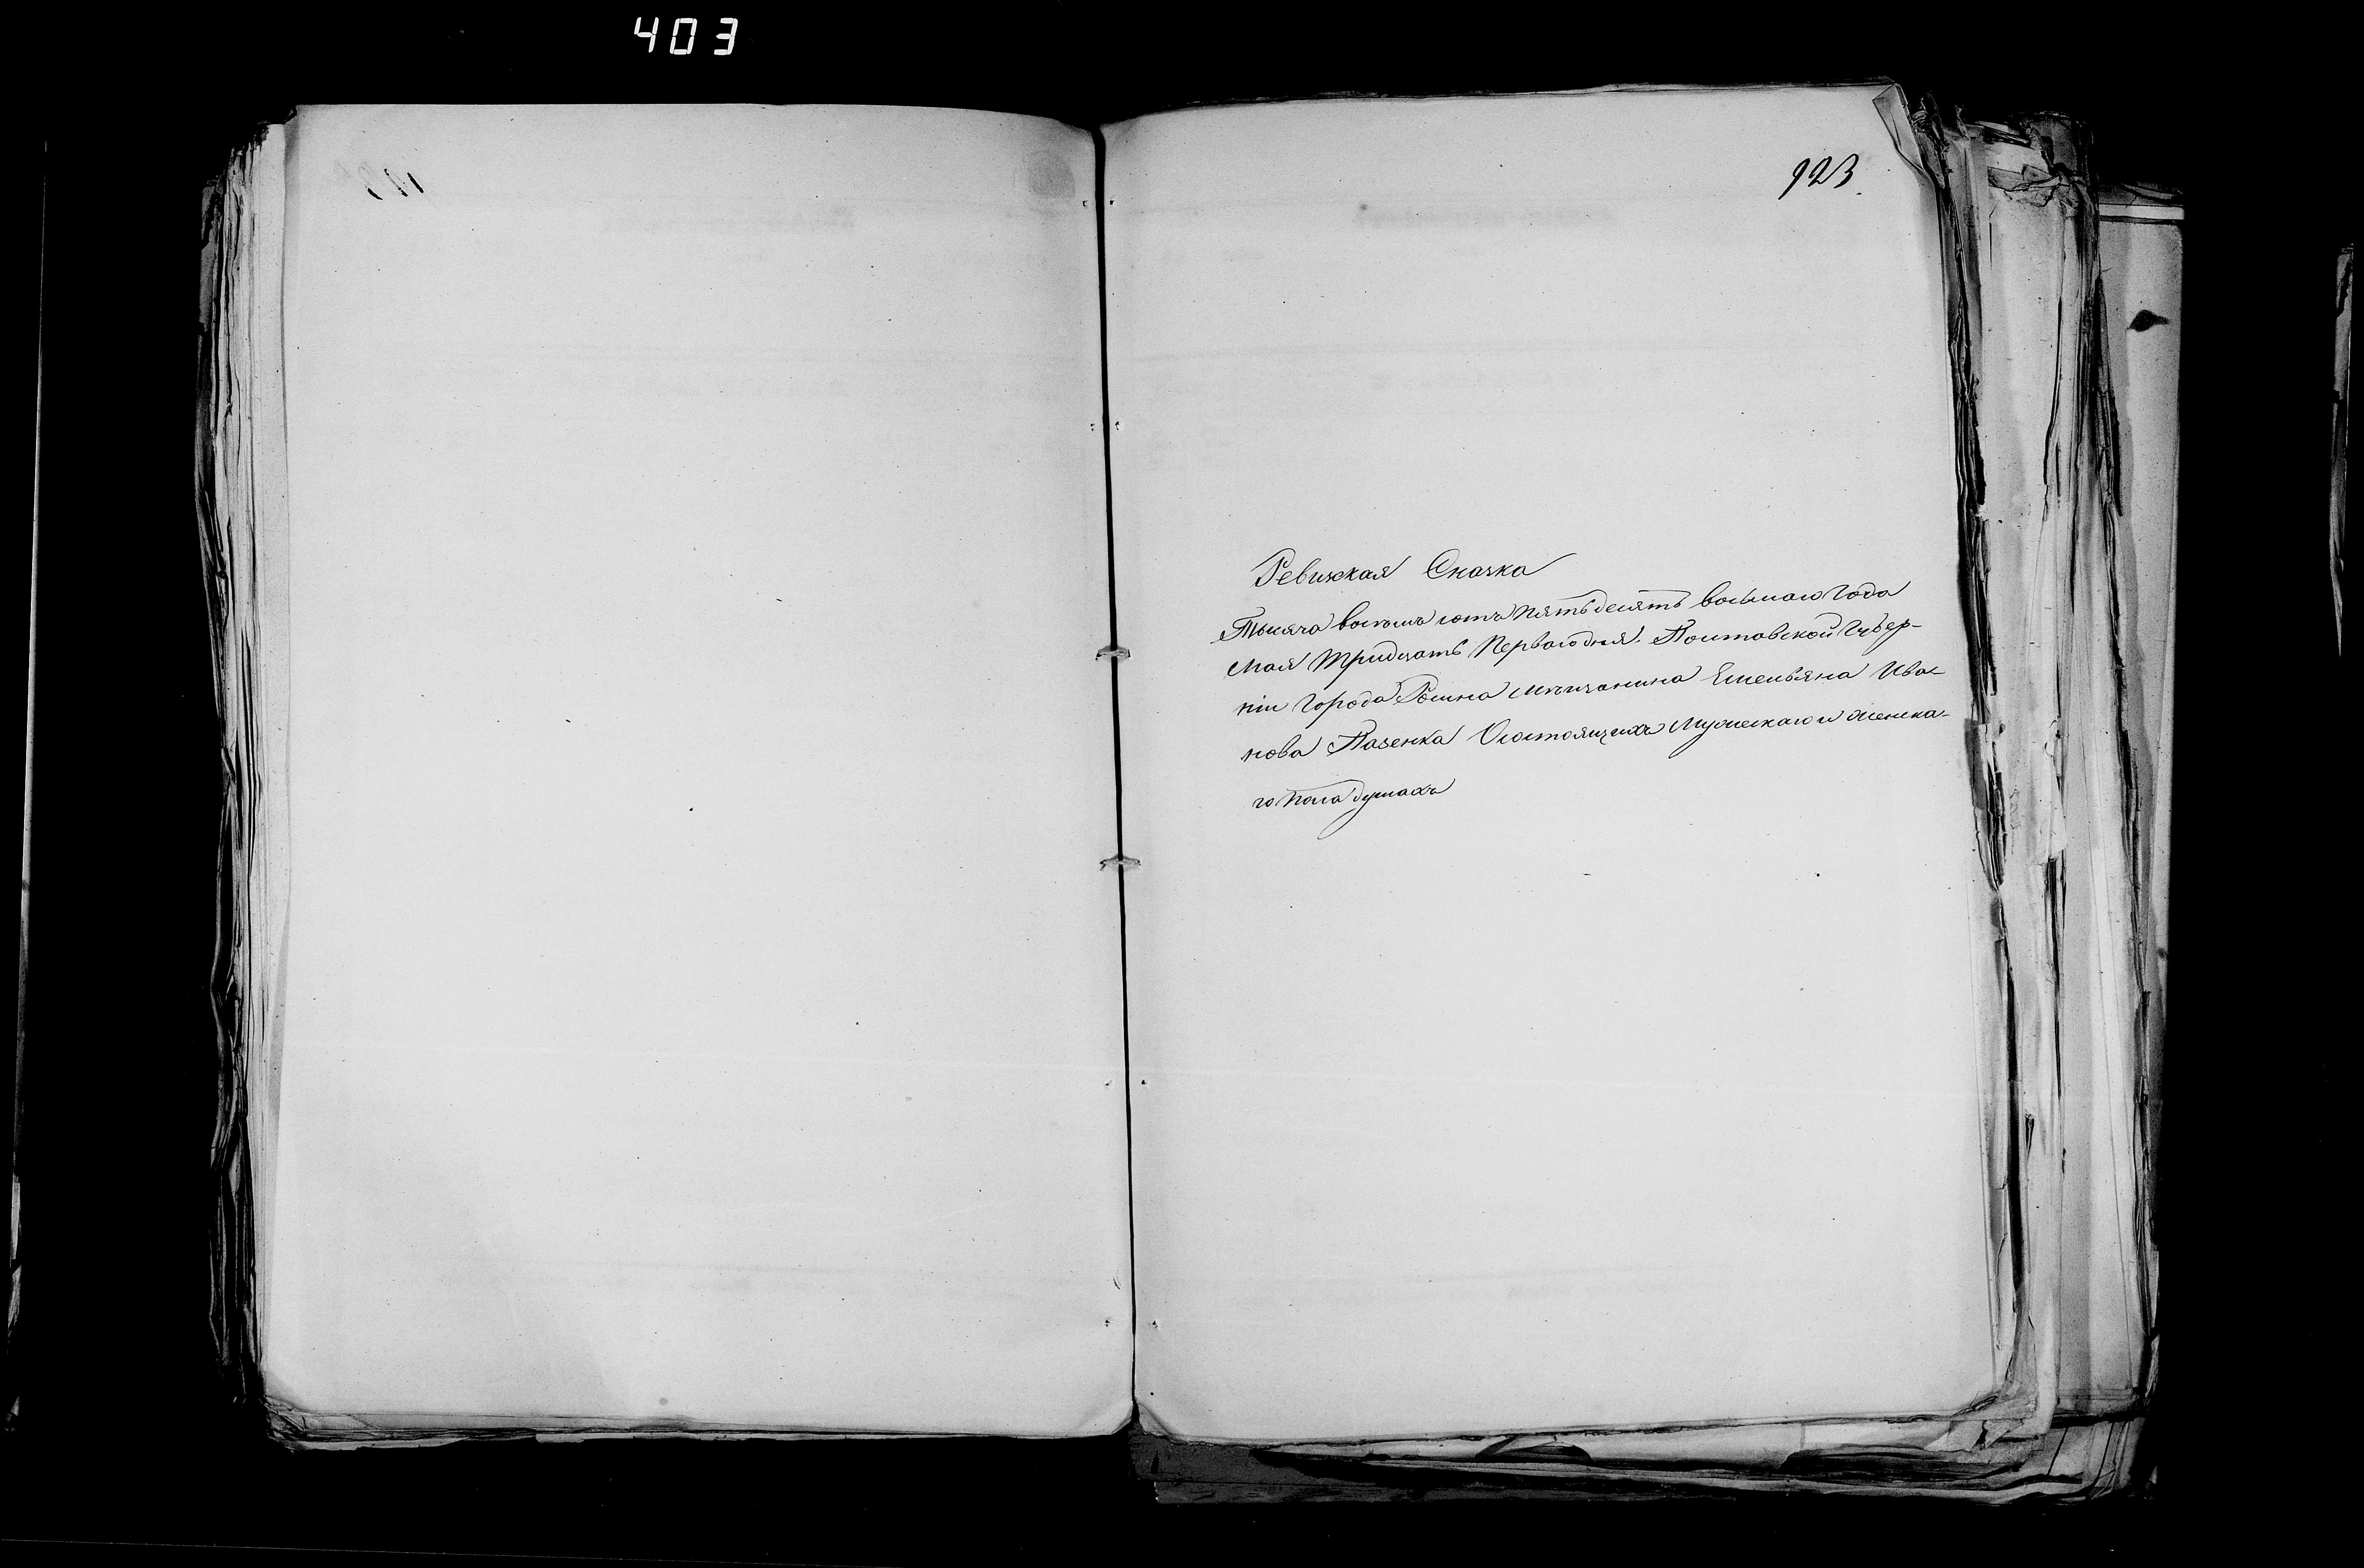 403
923
Ревизская Сказка
Тысяча восемь сотъ пятьдесятъ восьмаго года
Мая тридцать перваго дня. Полтавской Губер-
ніи города Ромна мѣщанина Емельяна Ива-
нова Паценка О состоящихъ мужескаго и женска-
го пола душахъ